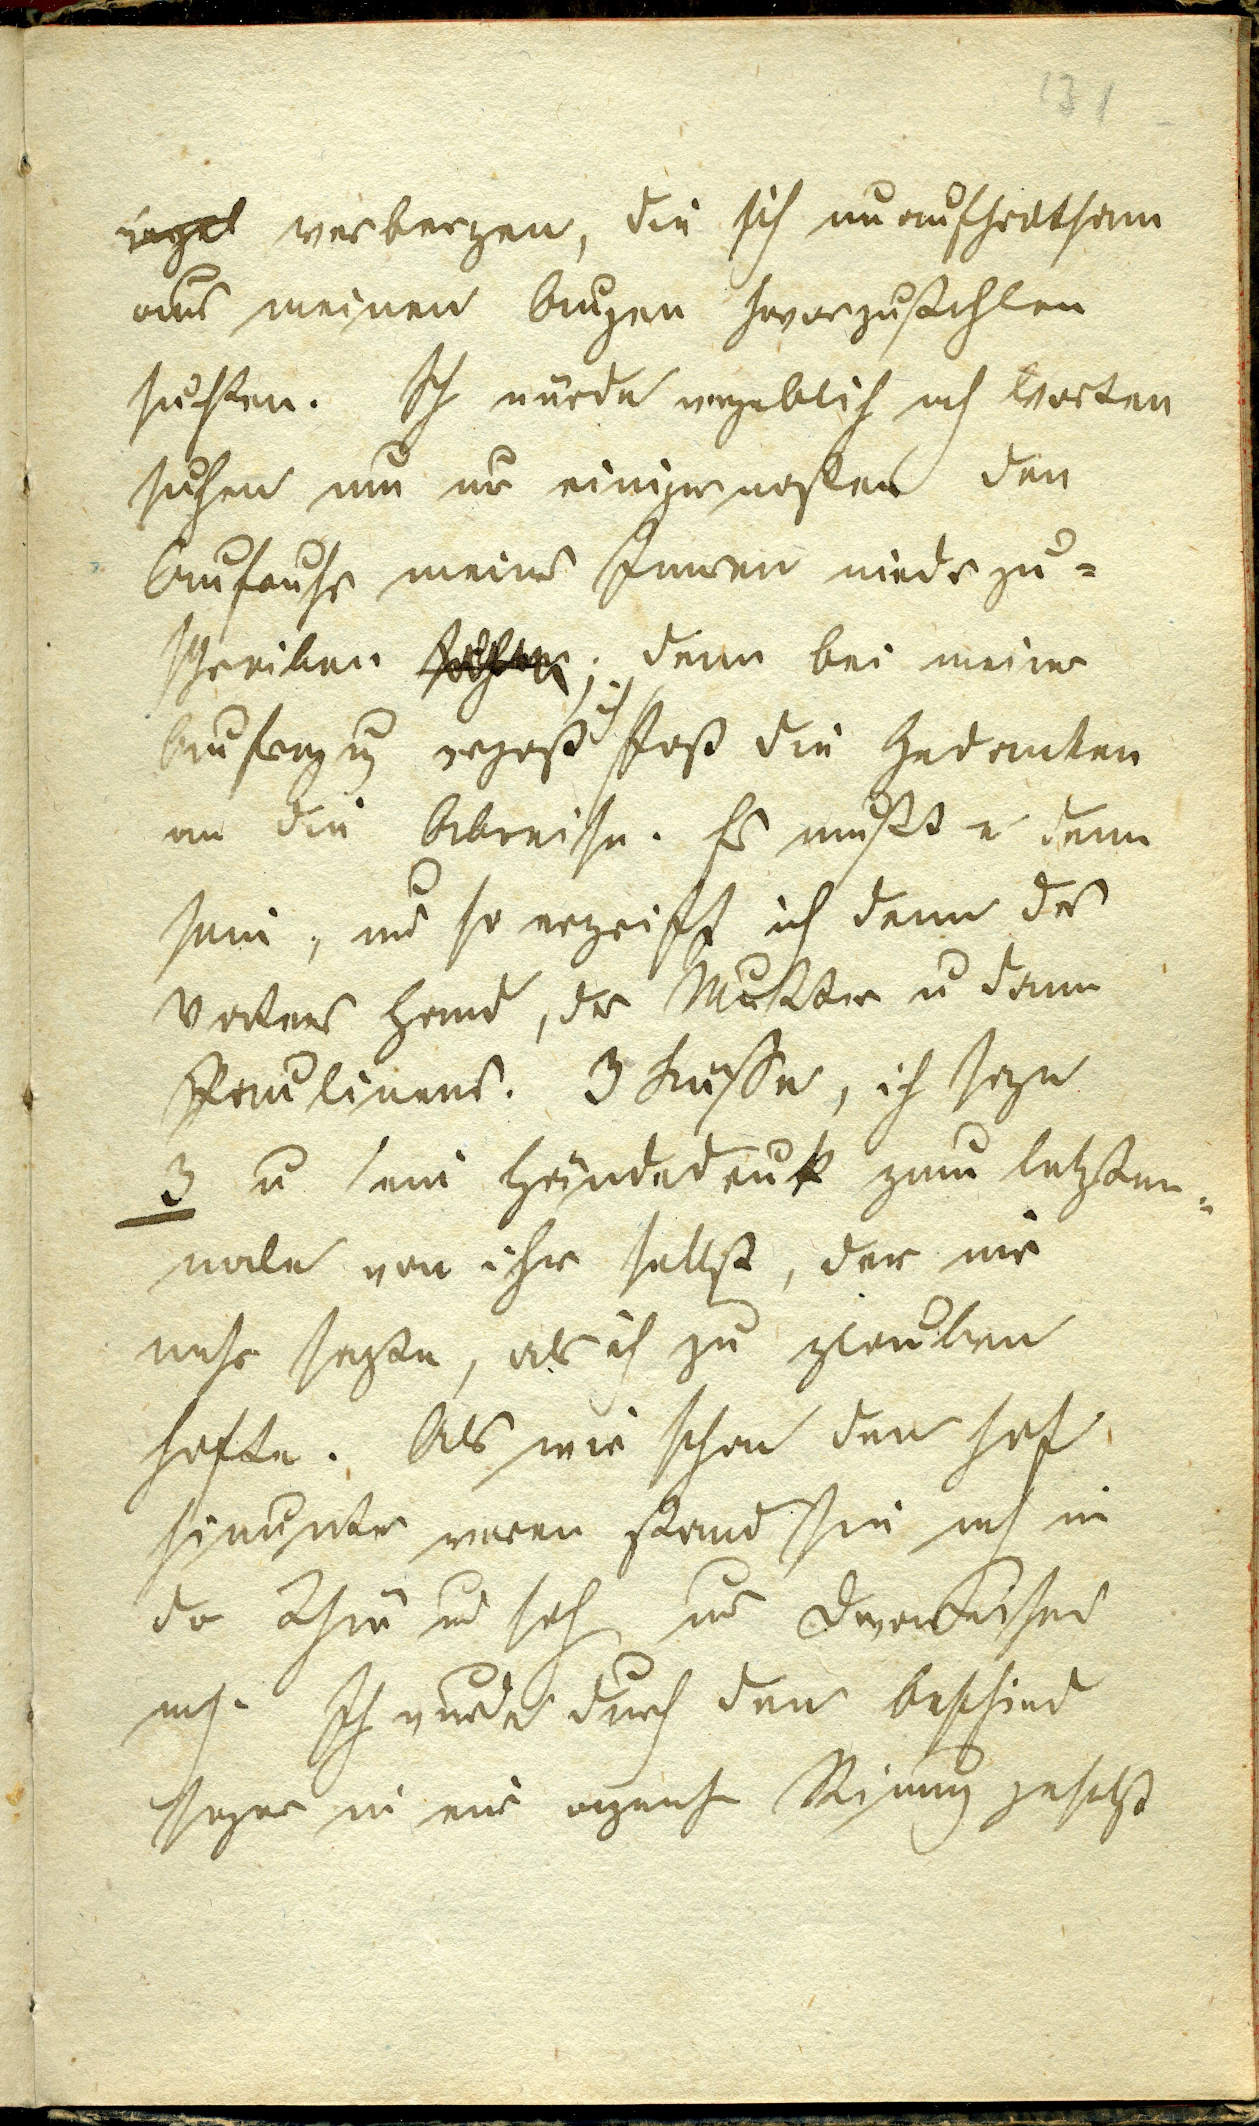 131
verbergen, die sich unaufhaltsam
aus meinen Augen hervorzustehlen
suchten. Ich würde vergeblich nach Worten
suchen um nur einigermaßen den
Aufruhr meines Innern niederzu=
schreiben; denn bei meiner
Aufregung vergaß ich fast die Gedanken
an die Abreise. Es mußte denn
sein, und so ergriff ich denn des
Vaters Hand, der Mutter u dann
Paulinens. 3 Küsse, ich sage
3 u ein Händedruck zum letzten=
male von ihr selbst, der mir
mehr sagte, als ich zu glauben
hoffte. Als wir schon den Hof
hinunter waren stand sie noch in
der Thür und sah uns
nach. Ich wurde durch den Abschied
sogar in eine Stimmung gesetzt